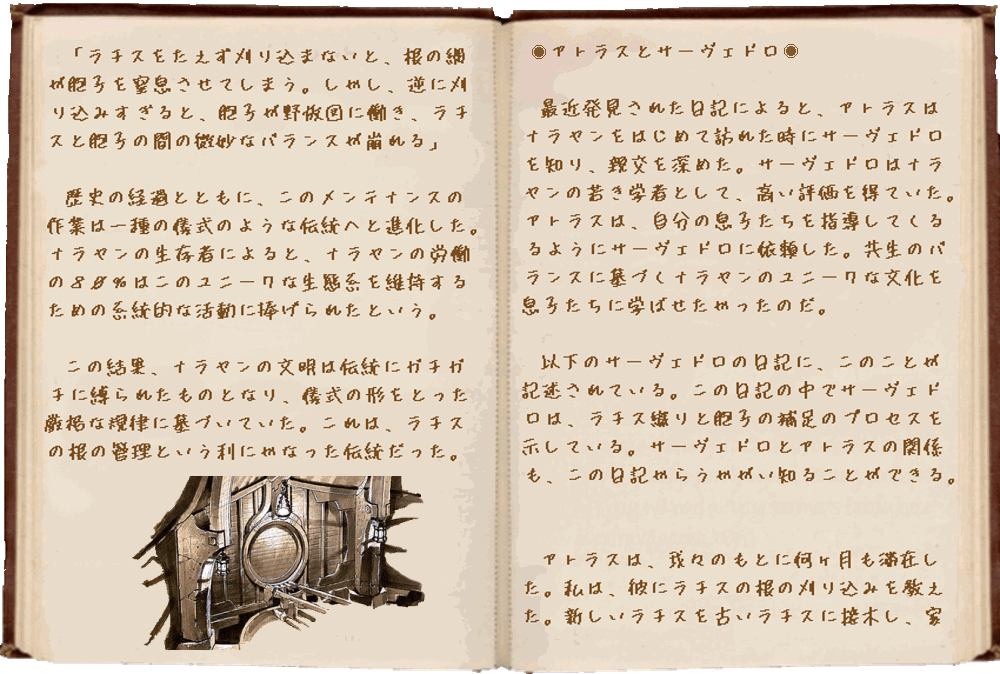 「ラチスをたえず刈り込まないと、根の網
が胞子を窒息させてしまう。しかし、逆に刈
り込みすぎると、胞子が野放図に働き、ラチ
スと胞子の間の微妙なバランスが崩れる」
歴史の経過とともに、このメンテナンスの
作業は一種の儀式のような伝統へと進化した。
ナラヤンの生存者によると、ナラヤンの労働
の８０％はこのユニークな生態系を維持する
ための系統的な活動に捧げられたという。
この結果、ナラヤンの文明は伝統にガチガ
チに縛られたものとなり、儀式の形をとった
厳格な規律に基づいていた。これは、ラチス
の根の管理という利にかなった伝統だった。
◉アトラスとサーヴェドロ◉
最近発見された日記によると、アトラスは
ナラヤンをはじめて訪れた時にサーヴェドロ
を知り、親交を深めた。サーヴェドロはナラ
ヤンの若き学者として、高い評価を得ていた。
アトラスは、自分の息子たちを指導してくる
るようにサーヴェドロに依頼した。共生のバ
ランスに基づくナラヤンのユニークな文化を
息子たちに学ばせたかったのだ。
以下のサーヴェドロの日記に、このことが
記述されている。この日記の中でサーヴェド
ロは、ラチス織りと胞子の補足のプロセスを
示している。サーヴェドロとアトラスの関係
も、この日記からうかがい知ることができる。
アトラスは、我々のもとに何ヶ月も滞在し
た。私は、彼にラチスの根の刈り込みを教え
た。新しいラチスを古いラチスに接木し、家